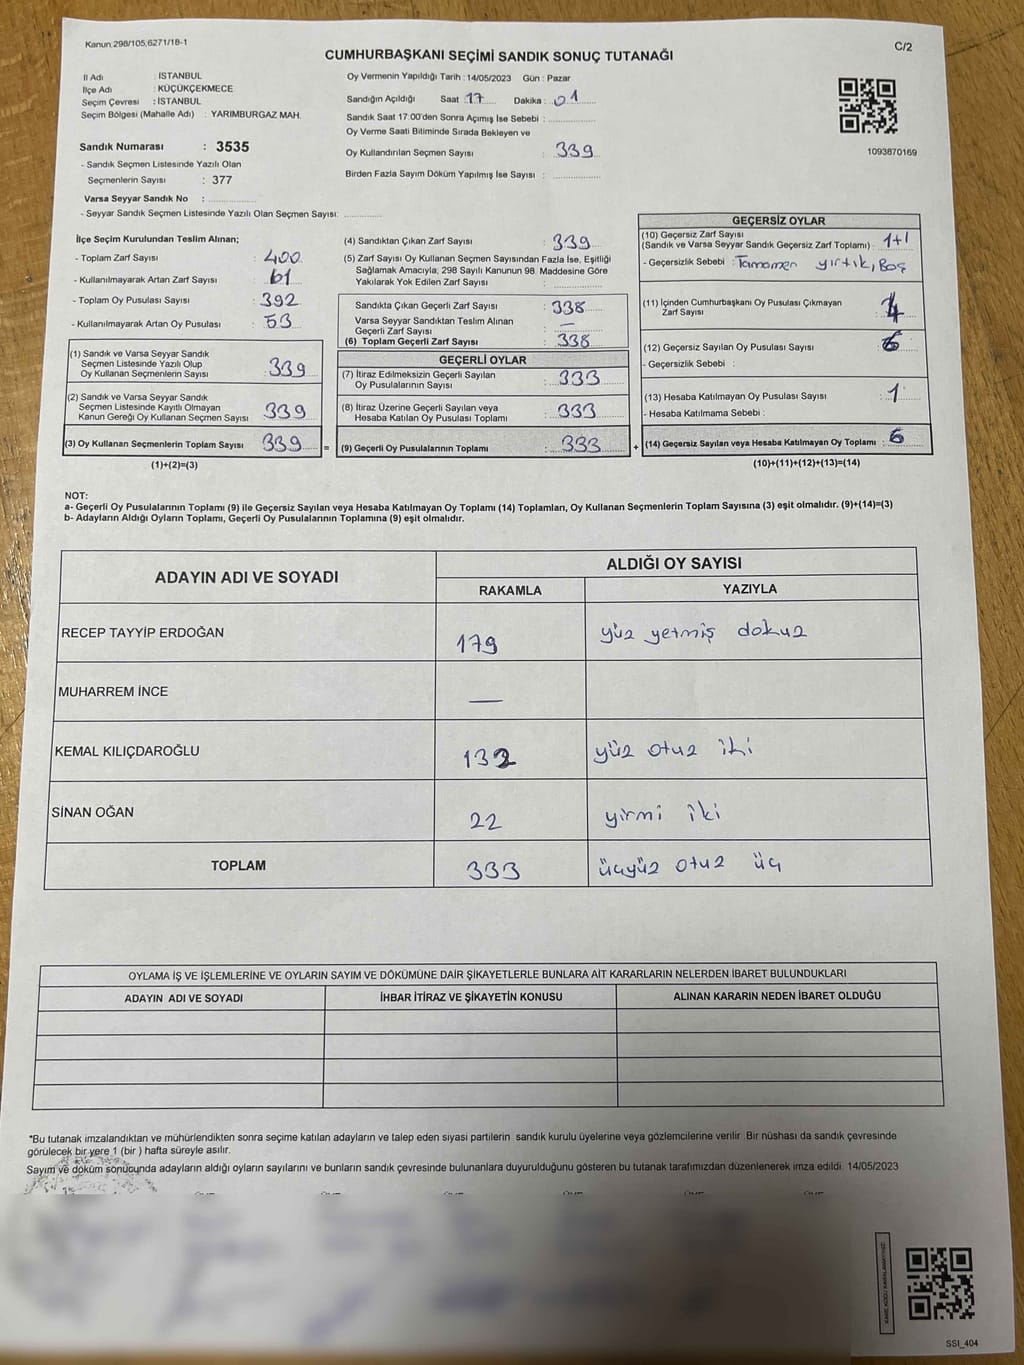 Kanun:298/105;6271/18-1
C/2
CUMHURBAŞKANI SEÇİMİ SANDIK SONUÇ TUTANAĞI
İl Adı : İSTANBUL
İlçe Adı : KÜÇÜKÇEKMECE
Seçim Çevresi : İSTANBUL
Seçim Bölgesi (Mahalle Adı) : YARIMBURGAZ MAH.
Sandık Numarası : 3535
- Sandık Seçmen Listesinde Yazılı Olan
Seçmenlerin Sayısı : 377
Varsa Seyyar Sandık No :
- Seyyar Sandık Seçmen Listesinde Yazılı Olan Seçmen Sayısı:
Oy Vermenin Yapıldığı Tarih : 14/05/2023 Gün : Pazar
Sandığın Açıldığı Saat : 17 Dakika : 01
Sandık Saat 17:00'den Sonra Açımış İse Sebebi :
Oy Verme Saati Bitiminde Sırada Bekleyen ve
Oy Kullandırılan Seçmen Sayısı : 339
Birden Fazla Sayım Döküm Yapılmış İse Sayısı :
1093870169
İlçe Seçim Kurulundan Teslim Alınan;
- Toplam Zarf Sayısı : 400
- Kullanılmayarak Artan Zarf Sayısı : 61
- Toplam Oy Pusulası Sayısı : 392
- Kullanılmayarak Artan Oy Pusulası : 53
(1) Sandık ve Varsa Seyyar Sandık
Seçmen Listesinde Yazılı Olup
Oy Kullanan Seçmenlerin Sayısı : 339
(2) Sandık ve Varsa Seyyar Sandık
Seçmen Listesinde Kayıtlı Olmayan
Kanun Gereği Oy Kullanan Seçmen Sayısı : 339
(3) Oy Kullanan Seçmenlerin Toplam Sayısı : 339 =
(1)+(2)=(3)
(4) Sandıktan Çıkan Zarf Sayısı : 339
(5) Zarf Sayısı Oy Kullanan Seçmen Sayısından Fazla İse, Eşitliği
Sağlamak Amacıyla, 298 Sayılı Kanunun 98. Maddesine Göre
Yakılarak Yok Edilen Zarf Sayısı :
Sandıkta Çıkan Geçerli Zarf Sayısı : 338
Varsa Seyyar Sandıktan Teslim Alınan
Geçerli Zarf Sayısı : —
(6) Toplam Geçerli Zarf Sayısı : 338
GEÇERLİ OYLAR
(7) İtiraz Edilmeksizin Geçerli Sayılan
Oy Pusulalarının Sayısı : 333
(8) İtiraz Üzerine Geçerli Sayılan veya
Hesaba Katılan Oy Pusulası Toplamı : 333
(9) Geçerli Oy Pusulalarının Toplamı : 333 +
GEÇERSİZ OYLAR
(10) Geçersiz Zarf Sayısı
(Sandık ve Varsa Seyyar Sandık Geçersiz Zarf Toplamı) : 1+1
- Geçersizlik Sebebi : Tamamen yırtık, Boş
(11) İçinden Cumhurbaşkanı Oy Pusulası Çıkmayan
Zarf Sayısı :
(12) Geçersiz Sayılan Oy Pusulası Sayısı : 6
- Geçersizlik Sebebi :
(13) Hesaba Katılmayan Oy Pusulası Sayısı : 1
- Hesaba Katılmama Sebebi :
(14) Geçersiz Sayılan veya Hesaba Katılmayan Oy Toplamı : 6
(10)+(11)+(12)+(13)=(14)
NOT:
a- Geçerli Oy Pusulalarının Toplamı (9) ile Geçersiz Sayılan veya Hesaba Katılmayan Oy Toplamı (14) Toplamları, Oy Kullanan Seçmenlerin Toplam Sayısına (3) eşit olmalıdır. (9)+(14)=(3)
b- Adayların Aldığı Oyların Toplamı, Geçerli Oy Pusulalarının Toplamına (9) eşit olmalıdır.
ADAYIN ADI VE SOYADI ALDIĞI OY SAYISI
RAKAMLA YAZIYLA
RECEP TAYYİP ERDOĞAN 179 yüz yetmiş dokuz
MUHARREM İNCE —
KEMAL KILIÇDAROĞLU 132 yüz otuz iki
SİNAN OĞAN 22 yirmi iki
TOPLAM 333 üçyüz otuz üç
OYLAMA İŞ VE İŞLEMLERİNE VE OYLARIN SAYIM VE DÖKÜMÜNE DAİR ŞİKAYETLERLE BUNLARA AİT KARARLARIN NELERDEN İBARET BULUNDUKLARI
ADAYIN ADI VE SOYADI İHBAR İTİRAZ VE ŞİKAYETİN KONUSU ALINAN KARARIN NEDEN İBARET OLDUĞU
*Bu tutanak imzalandıktan ve mühürlendikten sonra seçime katılan adayların ve talep eden siyasi partilerin sandık kurulu üyelerine veya gözlemcilerine verilir. Bir nüshası da sandık çevresinde
görülecek bir yere 1 (bir ) hafta süreyle asılır.
Sayım ve döküm sonucunda adayların aldığı oyların sayılarını ve bunların sandık çevresinde bulunanlara duyurulduğunu gösteren bu tutanak tarafımızdan düzenlenerek imza edildi. 14/05/2023
SSİ_404